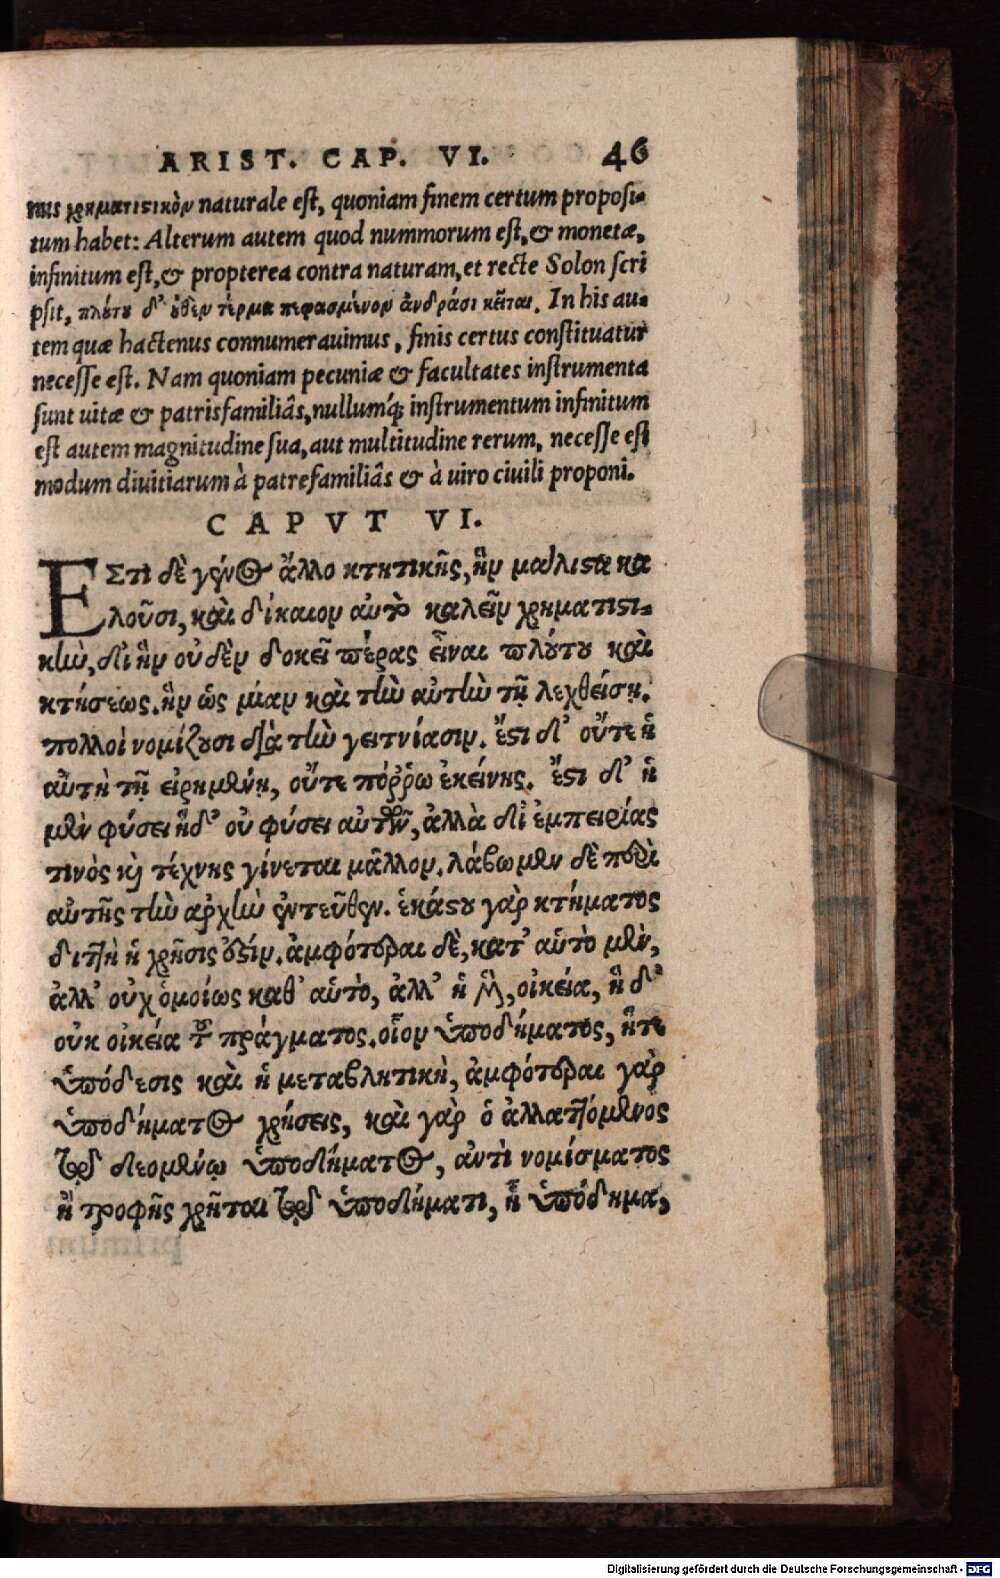 ARIST. CAP. VI. 46
nus χρηματιστικὸν naturale est, quoniam finem certum proposi-
tum habet: Alterum autem quod nummorum est, & monetæ,
infinitum est, & propterea contra naturam, et recte Solon scri
psit, πλούτου δ' οὐθὲν τέρμα πεφασμένον ἀνδράσι κεῖται. In his au-
tem quæ hactenus connumerauimus, finis certus constituatur
necesse est. Nam quoniam pecuniæ & facultates instrumenta
sunt uitæ & patrisfamiliâs, nullumq́; instrumentum infinitum
est autem magnitudine sua, aut multitudine rerum, necesse est
modum diuitiarum à patrefamiliâs & à uiro ciuili proponi.
CAPVT VI.
ΕΣτὶ δὲ γένος ἄλλο κτητικῆς, ἣν μάλιστα κα
λοῦσι, καὶ δίκαιον αὐτὸ καλεῖν χρηματιστι-
κὴν, δι' ἣν οὐδὲν δοκεῖ πέρας εἶναι πλούτου καὶ
κτήσεως. ἣν ὡς μίαν καὶ τὴν αὐτὴν τῇ λεχθείσῃ.
πολλοὶ νομίζουσι διὰ τὴν γειτνίασιν. ἔστι δ' οὔτε ἡ
αὐτὴ τῇ εἰρημένῃ, οὔτε πόῤῥω ἐκείνης. ἔστι δ' ἡ
μὲν φύσει ἡ δ' οὐ φύσει αὐτῶν, ἀλλὰ δι' ἐμπειρίας
τινὸς καὶ τέχνης γίνεται μᾶλλον. λάβωμεν δὲ περὶ
αὐτῆς τὴν ἀρχὴν ἐντεῦθεν. ἑκάστου γὰρ κτήματος
διττὴ ἡ χρῆσις ἐστίν. ἀμφότεραι δὲ, κατ' αὑτὸ μὲν,
ἀλλ' οὐχ ὁμοίως καθ' αὑτὸ, ἀλλ' ἡ μὲν, οἰκεία, ἡ δ'
οὐκ οἰκεία τοῦ πράγματος. οἷον ὑποδήματος, ἥτε
ὑπόδεσις καὶ ἡ μεταβλητικὴ, ἀμφότεραι γὰρ
ὑποδήματος χρήσεις, καὶ γὰρ ὁ ἀλλαττόμενος
τῷ δεομένῳ ὑποδήματος, ἀντὶ νομίσματος
ἢ τροφῆς χρῆται τῷ ὑποδήματι, ᾗ ὑπόδημα,
Digitalisierung gefördert durch die Deutsche Forschungsgemeinschaft - DFG